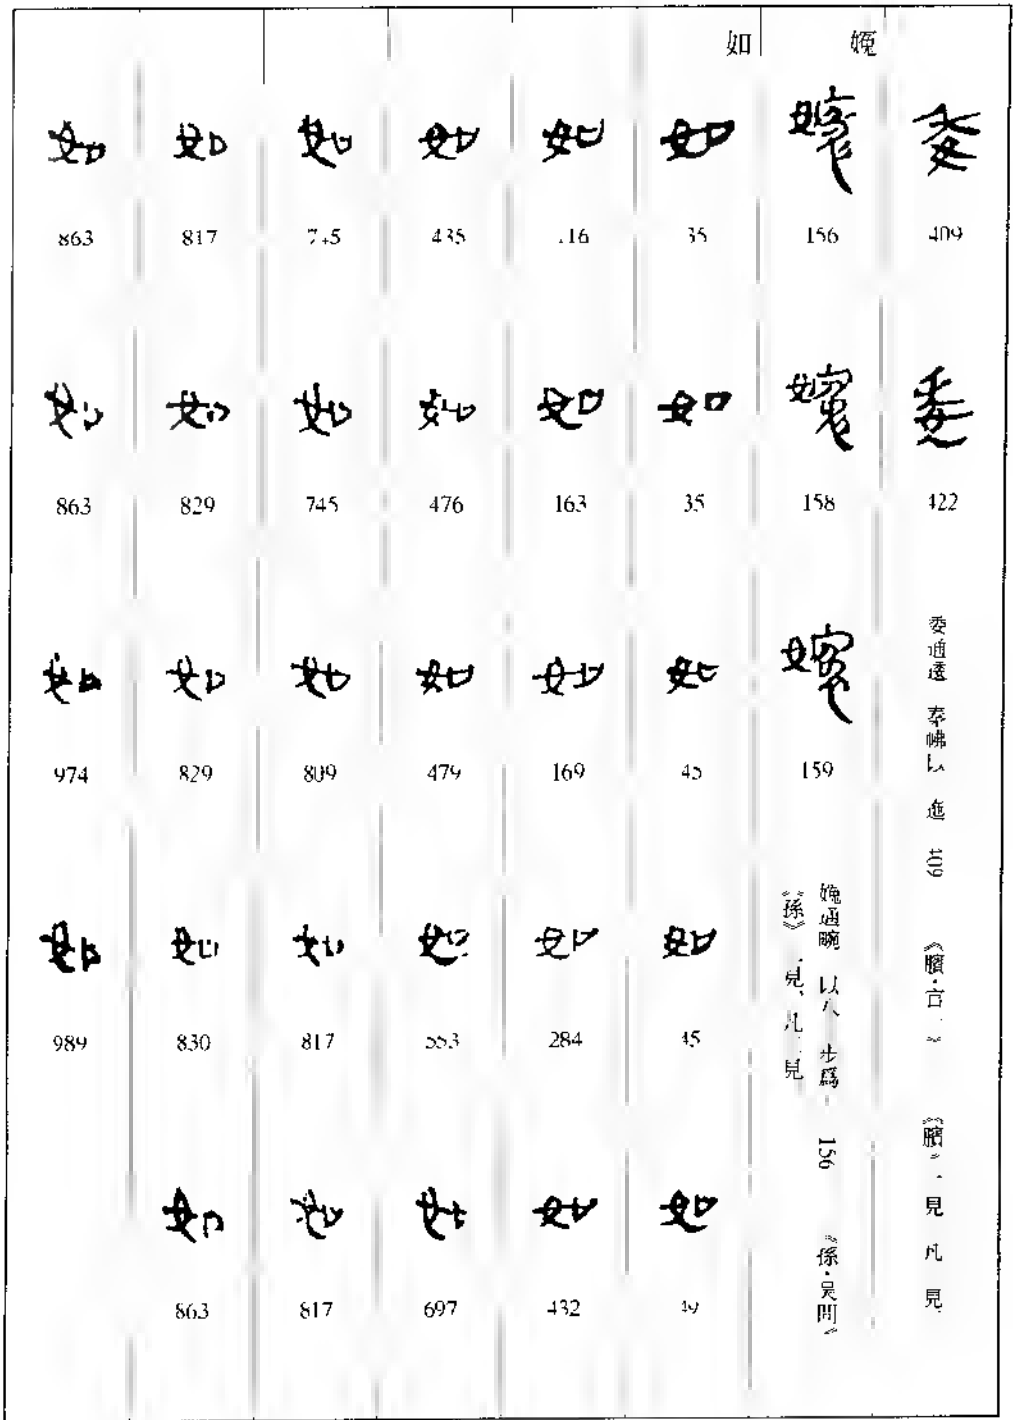 委 409 委 422 委通逶 以 進 409 《臏·官一》 《臏》 見 凡 見
婏
婏 156 婏 158 婏 159 婏通畹 以八 步爲 156 《孫·吳問》
《孫》 見、凡 見
如
如 35 如 35 如 45 如 45 如 49
如 116 如 163 如 169 如 284 如 432
如 435 如 476 如 479 如 553 如 697
如 745 如 745 如 809 如 817 如 817
如 817 如 829 如 829 如 830 如 863
如 863 如 863 如 974 如 989